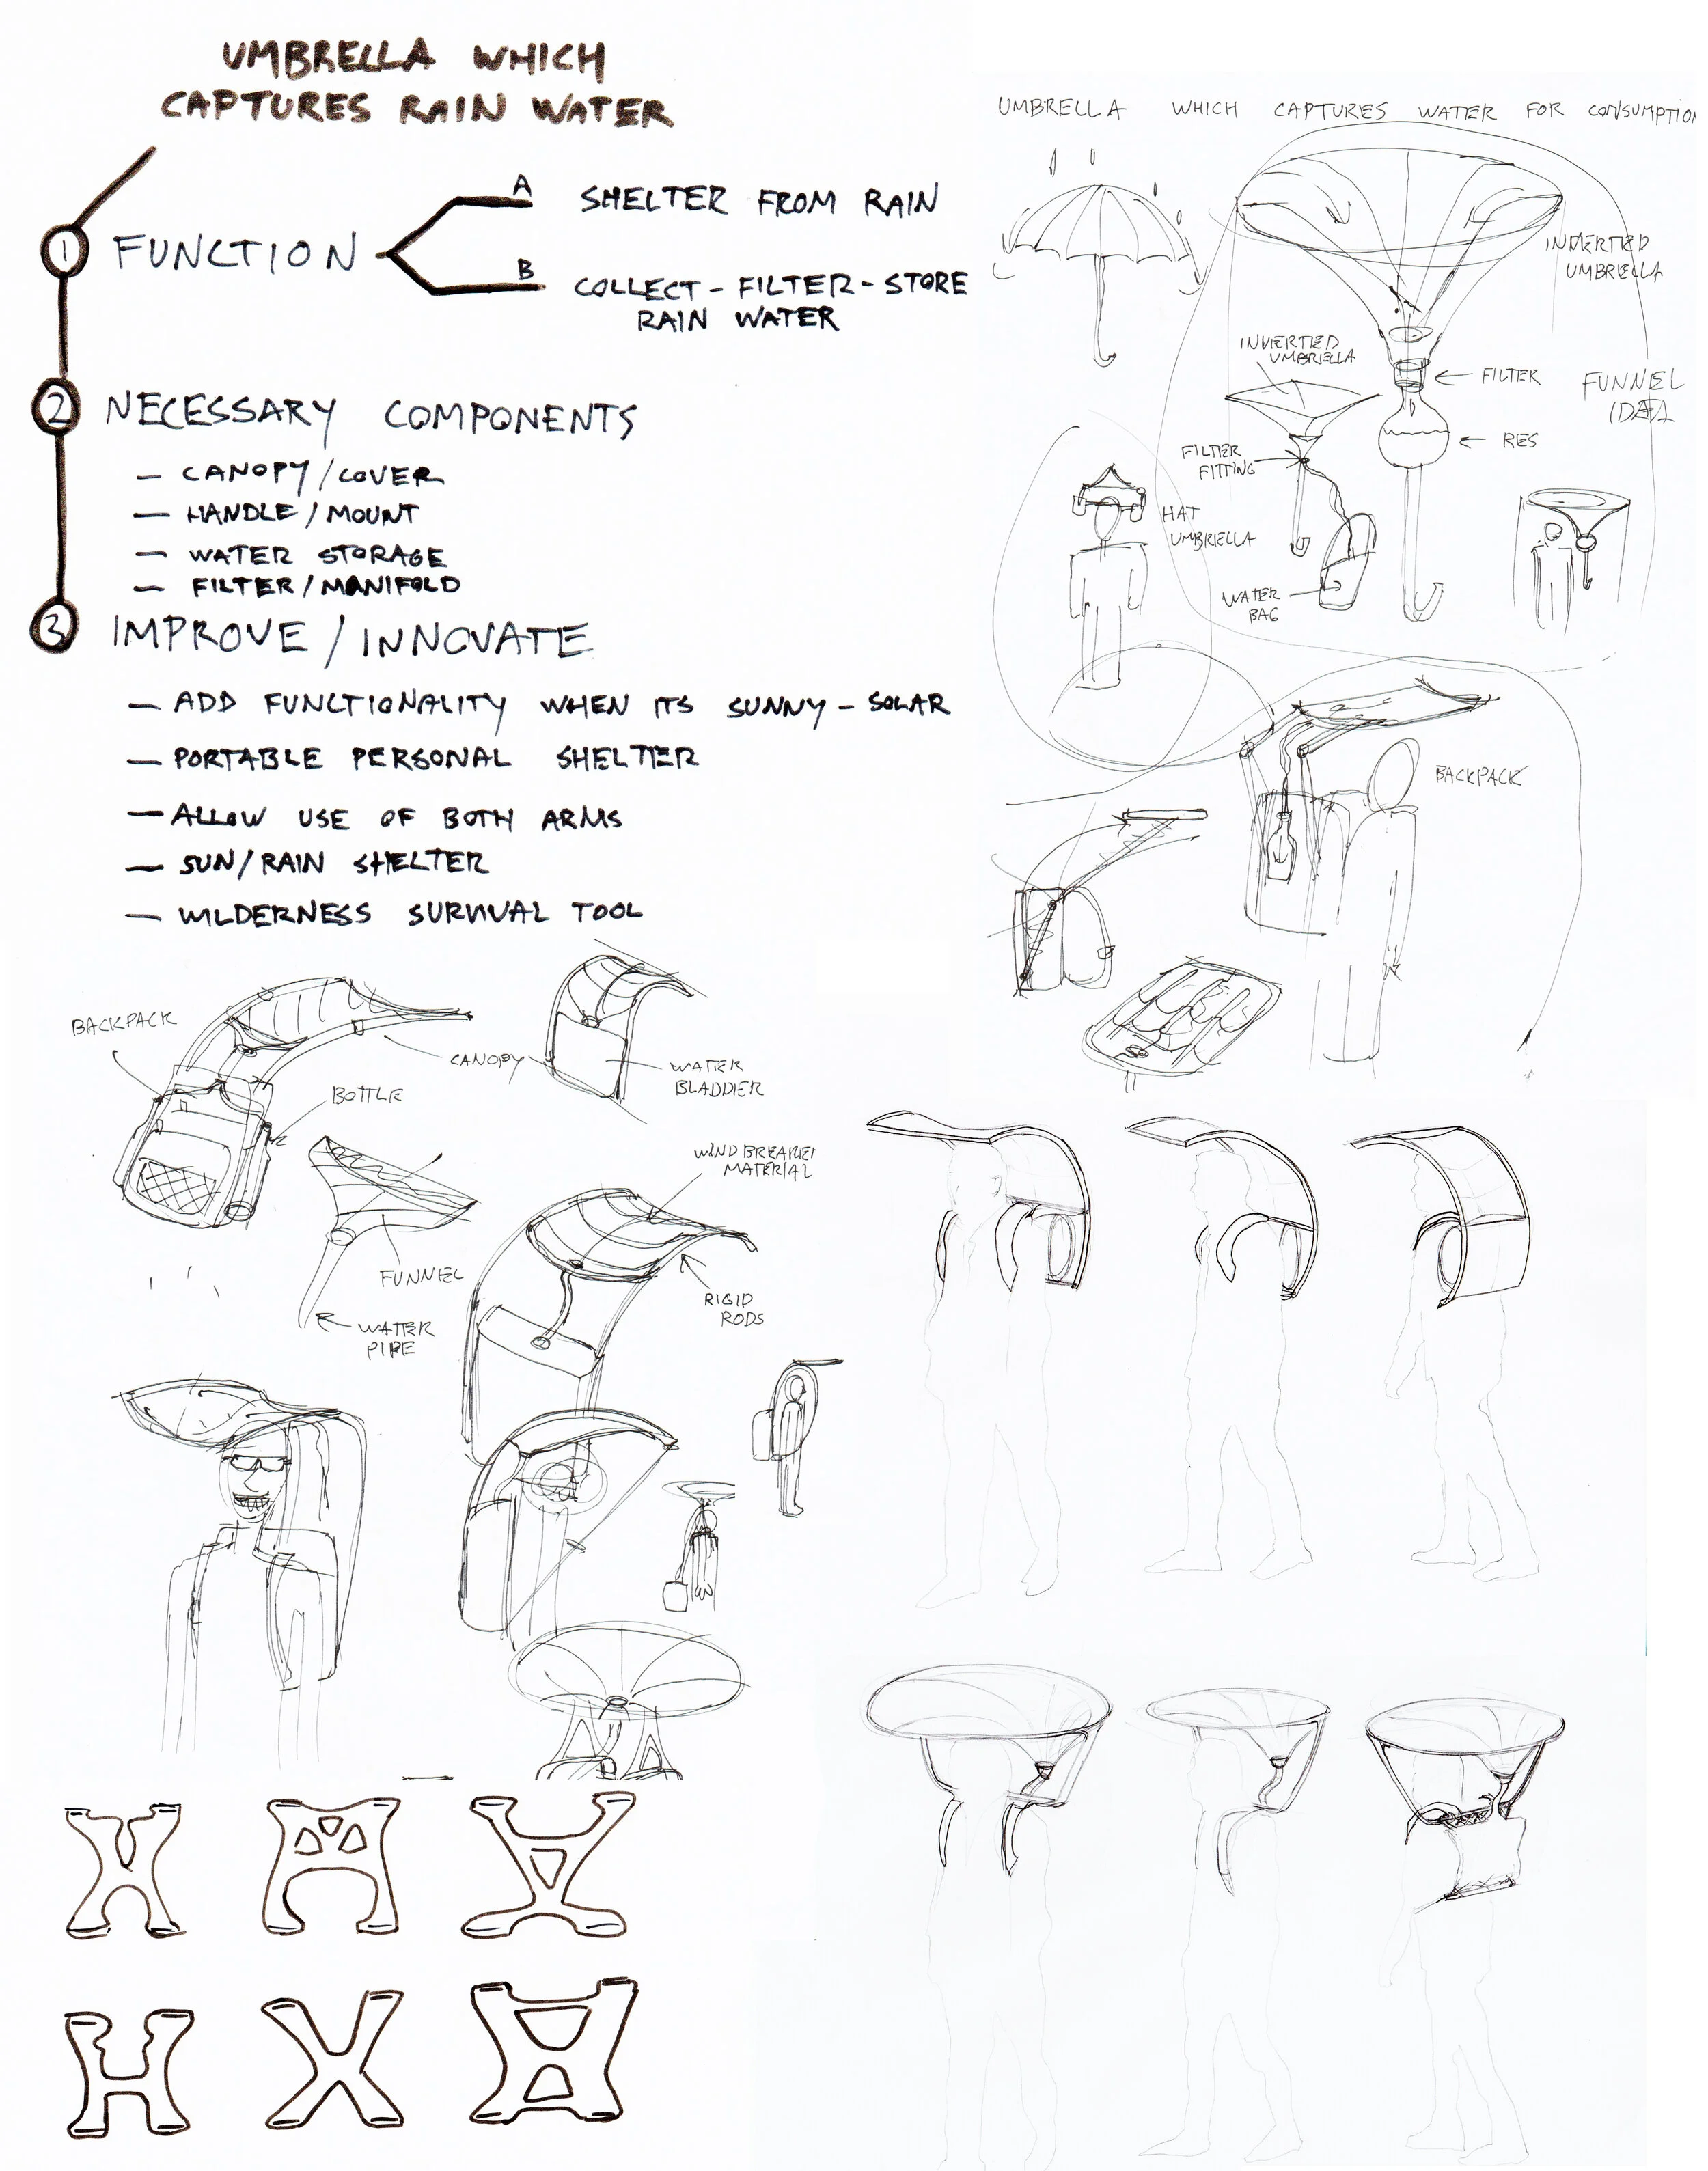 UMBRELLA WHICH
CAPTURES RAIN WATER
1 FUNCTION
A SHELTER FROM RAIN
B COLLECT - FILTER - STORE
RAIN WATER
2 NECESSARY COMPONENTS
— CANOPY/COVER
— HANDLE/MOUNT
— WATER STORAGE
— FILTER/MANIFOLD
3 IMPROVE/INNOVATE
— ADD FUNCTIONALITY WHEN ITS SUNNY - SOLAR
— PORTABLE PERSONAL SHELTER
— ALLOW USE OF BOTH ARMS
— SUN/RAIN SHELTER
— WILDERNESS SURVIVAL TOOL
UMBRELLA WHICH CAPTURES WATER FOR CONSUMPTION
INVERTED
UMBRELLA
INVERTED
UMBRELLA
FILTER
FUNNEL
IDEA
RES
FILTER
FITTING
HAT
UMBRELLA
WATER
BAG
BACKPACK
BACKPACK
CANOPY
WATER
BLADDER
BOTTLE
WINDBREAKER
MATERIAL
FUNNEL
RIGID
RODS
WATER
PIPE